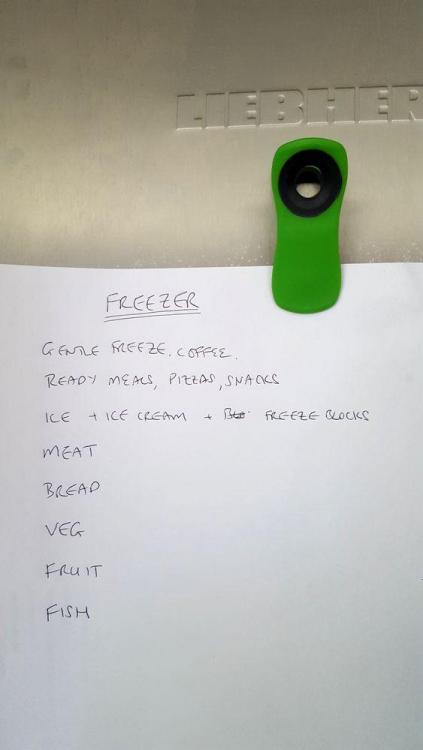 LIEBHER
FREEZER
GENTLE FREEZE. COFFEE.
READY MEALS, PIZZAS, SNACKS
ICE + ICE CREAM + FREEZE BLOCKS
MEAT
BREAD
VEG
FRUIT
FISH